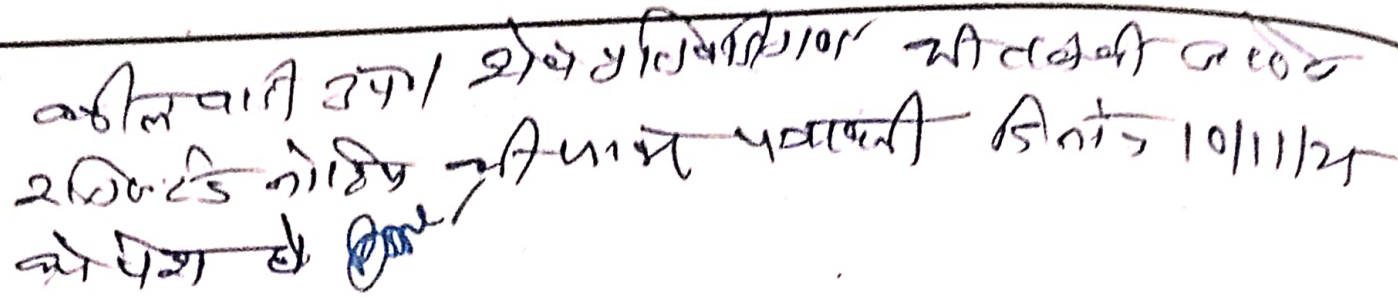 वकील वादी उप। शेष प्रतिवादीगण की तलबी जरिये
रजिस्टर्ड नोटिस की जावे पत्रावली दिनांक 10/11/25
को पेश हो